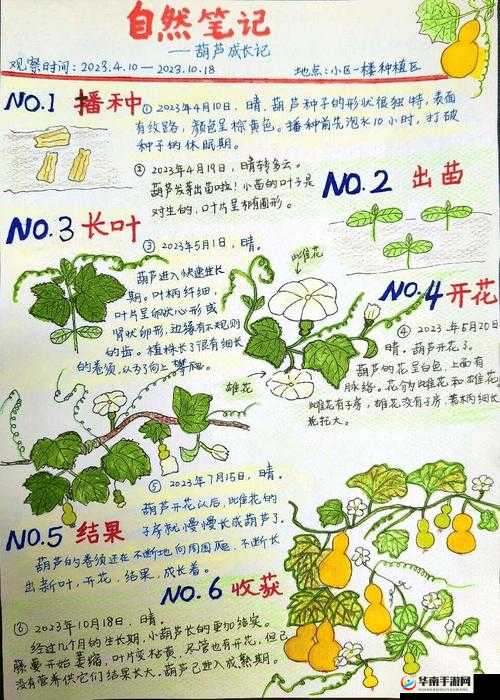 自然笔记
——葫芦成长记
观察时间：2023.4.10—2023.10.18
地点：小区一楼种植区
NO.1 播种
① 2023年4月10日，晴。葫芦种子的形状很独特，表面
有纹路，颜色呈棕黄色。播种前先泡水10小时，打破
种子的休眠期。
② 2023年4月19日，晴转多云。
葫芦发芽出苗啦！小苗的叶子是
对生的，叶片呈卵圆形。
NO.2 出苗
NO.3 长叶
③ 2023年5月1日，晴。
葫芦进入快速生长
期。叶柄纤细，
叶片呈卵状心形或
肾状卵形，边缘有不规则
的齿。植株长了很有细长
的卷须，从方向上攀爬。
雌花
雄花
NO.4 开花
④ 2023年5月20日
晴。葫芦开花了。
葫芦的花呈白色，上面有
脉络。花分雌花和雄花，
雌花有子房，雄花没有子房，花柄细长
花托大。
⑤ 2023年7月15日，晴。
葫芦开花以后，雌花的
子房就慢慢长成葫芦了。
NO.5 结果
葫芦的卷须还在不断地向周围爬，不断长
出新叶，开花，结果，成长着。
NO.6 收获
⑥ 2023年10月18日，晴。
经过几个月的生长期，小葫芦长的更加结实。
藤蔓开始萎缩，叶片变枯黄，尽管也有开花，但已
没有营养供它们结果长大。葫芦已进入成熟期。
华南手游网